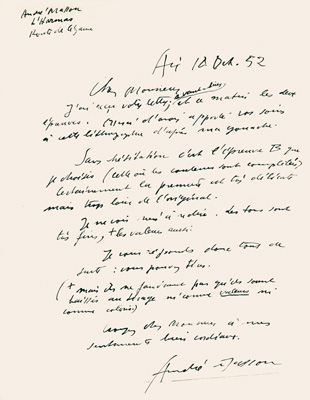 André Masson
L'Harmas
Route de
Aix 18 Oct. 52
Cher Monsieur
J'ai reçu votre lettre avant-hier, et ce matin les deux
épreuves. Merci d'avoir apporté vos soins
à cette lithographie d'après ma gouache.
Sans hésitation c'est l'épreuve B que
je choisis (celle où les couleurs sont complètes)
certainement la première est très délicate
mais trop loin de l'original.
Je ne vois rien à redire. Les tons sont
très fins, + les valeurs aussi.
Je vous réponds donc tout de
suite : vous pouvez
(+ mais il ne faudrait pas qu'ils soient
baissés au tirage ni comme valeurs ni
comme coloris)
Croyez cher Monsieur à mes
sentiments bien cordiaux.
André Masson